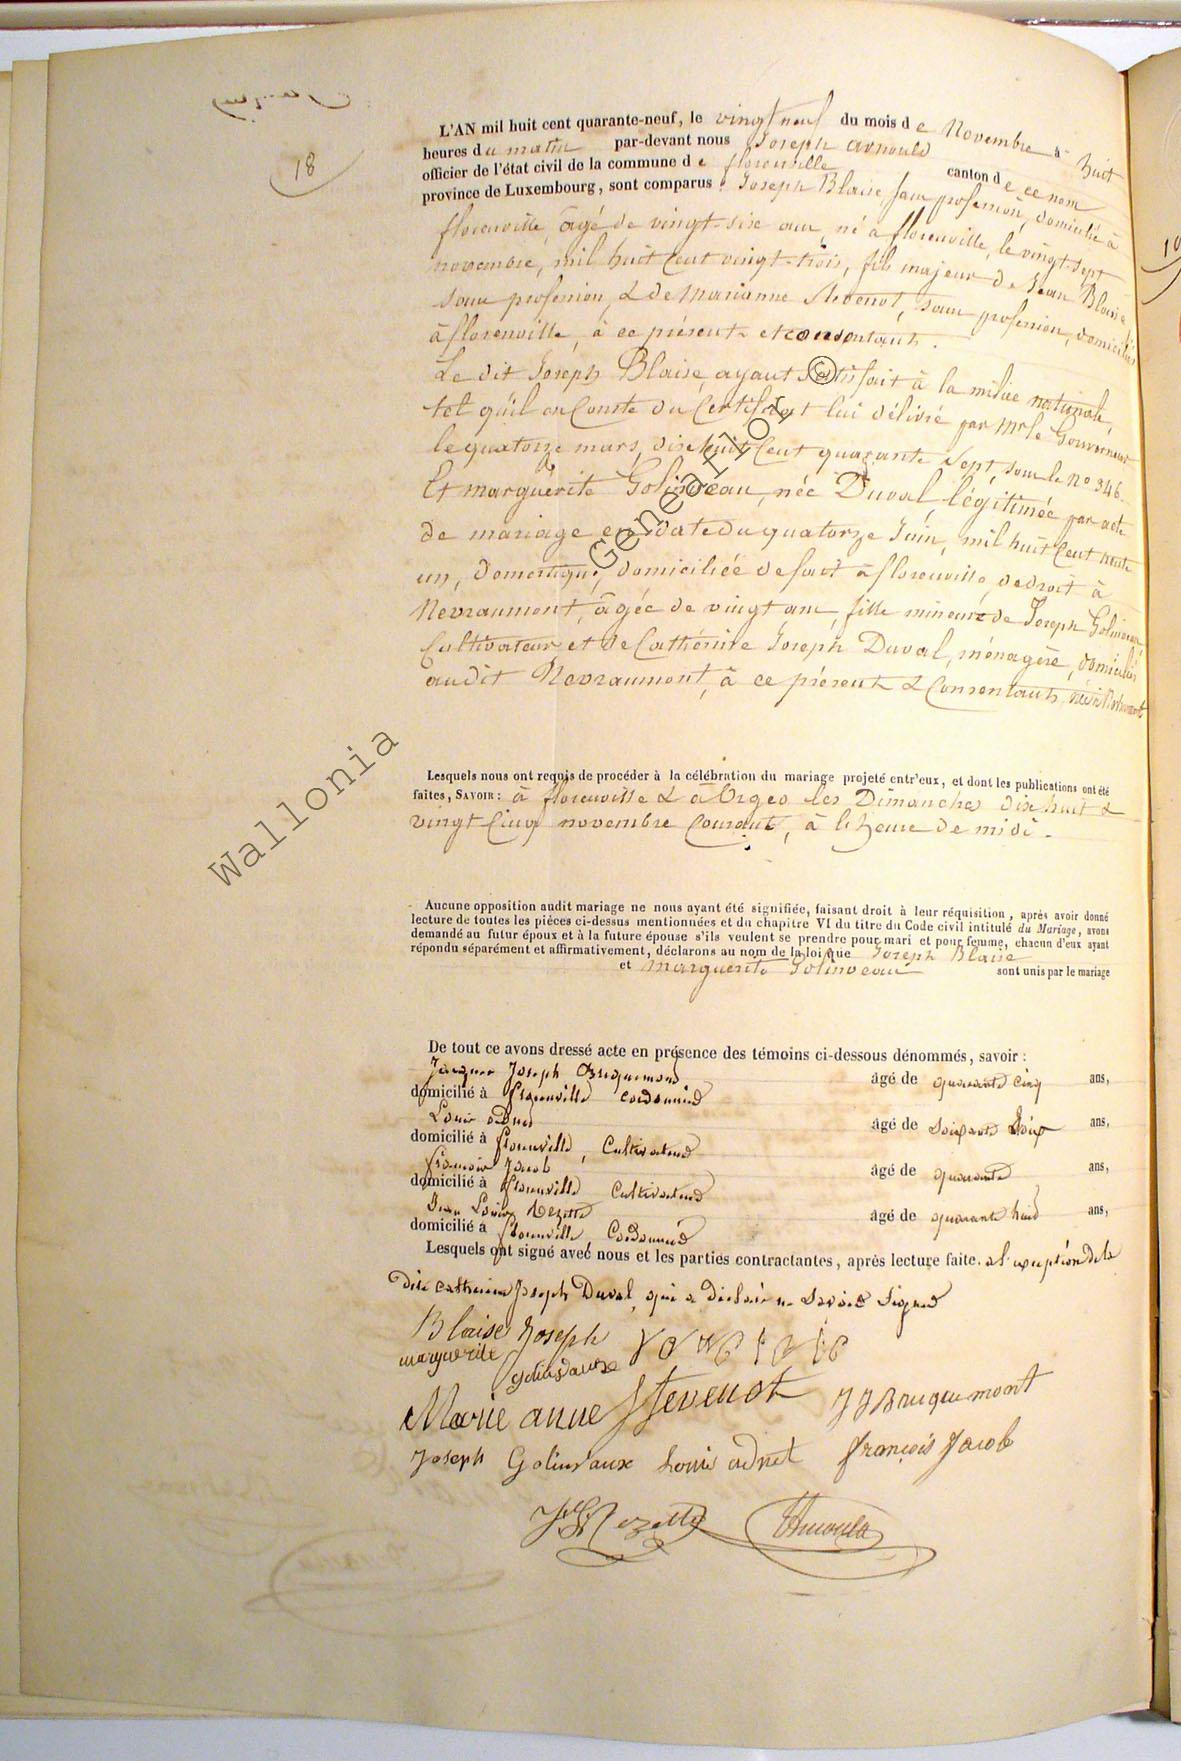 18
L'AN mil huit cent quarante-neuf, le vingt neuf du mois de Novembre à huit
heures du matin par-devant nous Joseph Arnould
officier de l'état civil de la commune de florenville canton de ce nom
province de Luxembourg, sont comparus : Joseph Blaise, sans profession, domicilié à
florenville, âgé de vingt-six ans, né à florenville, le vingt-sept
novembre, mil huit cent vingt-trois, fils majeur de Jean Blaise
sans profession, & de Marianne Stevenot, sans profession, domiciliés
à florenville, à ce présents et consentants.
Le dit Joseph Blaise, ayant satisfait à la milice nationale,
tel qu'il en Conste du Certificat lui délivré par Mr le Gouverneur
le quatorze mars, dix huit Cent quarante Sept, sous le No 346.
Et marguerite Golinveau, née Duval, légitimée par acte
de mariage en date du quatorze Juin, mil huit Cent trente
un, domestique, domiciliée de fait à florenville, de droit à
Nevraumont, âgée de vingt ans, fille mineure de Joseph Golinveau,
Cultivateur et de Cathérine Joseph Duval, ménagère, domiciliés
audit Nevraumont, à ce présents & Consentants,
Lesquels nous ont requis de procéder à la célébration du mariage projeté entr'eux, et dont les publications ont été
faites, SAVOIR : à florenville & à Orgeo les Dimanches dix huit &
vingt Cinq novembre Courant, à l'heure de midi.
Aucune opposition audit mariage ne nous ayant été signifiée, faisant droit à leur réquisition, après avoir donné
lecture de toutes les pièces ci-dessus mentionnées et du chapitre VI du titre du Code civil intitulé du Mariage, avons
demandé au futur époux et à la future épouse s'ils veulent se prendre pour mari et pour femme, chacun d'eux ayant
répondu séparément et affirmativement, déclarons au nom de la loi que Joseph Blaise
et marguerite Golinveau sont unis par le mariage
De tout ce avons dressé acte en présence des témoins ci-dessous dénommés, savoir :
Jacques Joseph Bruquemont âgé de quarante cinq ans,
domicilié à florenville cordonnier
Louis adnet âgé de Soixante ans,
domicilié à florenville, Cultivateur
françois Jacob âgé de quarante ans,
domicilié à florenville Cultivateur
Jean Louis Rezette âgé de quarante huit ans,
domicilié à florenville, Cordonnier
Lesquels ont signé avec nous et les parties contractantes, après lecture faite. a l'exception de la
dite catherine Joseph Duval, qui a déclaré ne Savoir Signer
Blaise Joseph
marguerite
Marie anne Stevenot JJ Bruquemont
Joseph Golinvaux Louis adnet françois Jacob
JL Rezette JArnould
Wallonia Geneaflor ©